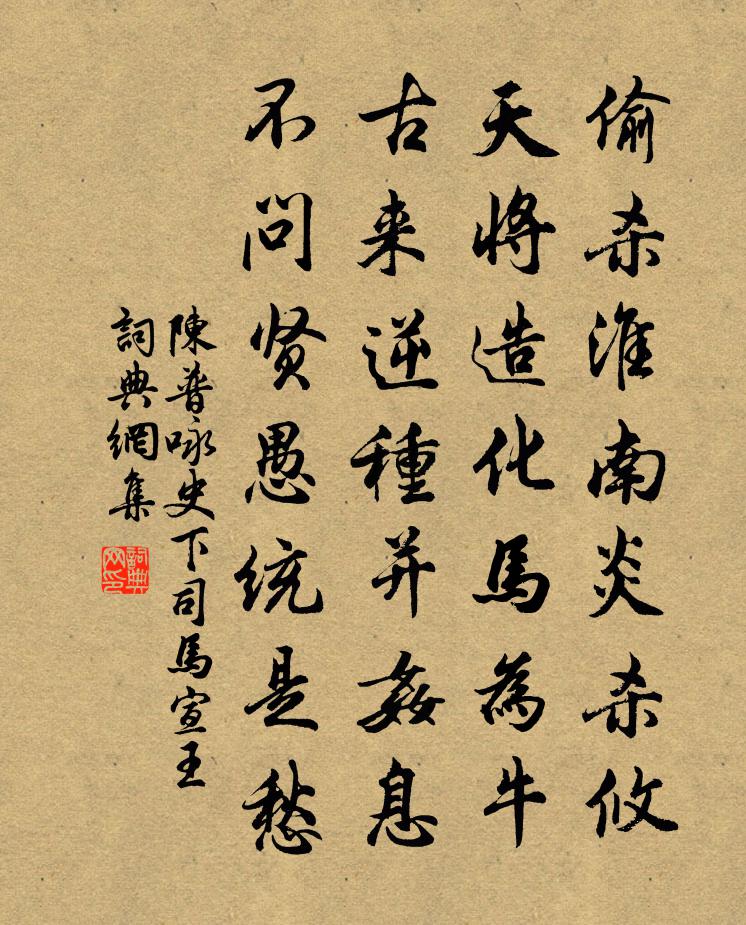 偷杀淮南炎杀攸
天将造化馬為牛
古来逆種并姦息
不问贤愚统是愁
陳普咏史下司馬宣王
詞典網集
詞典网印